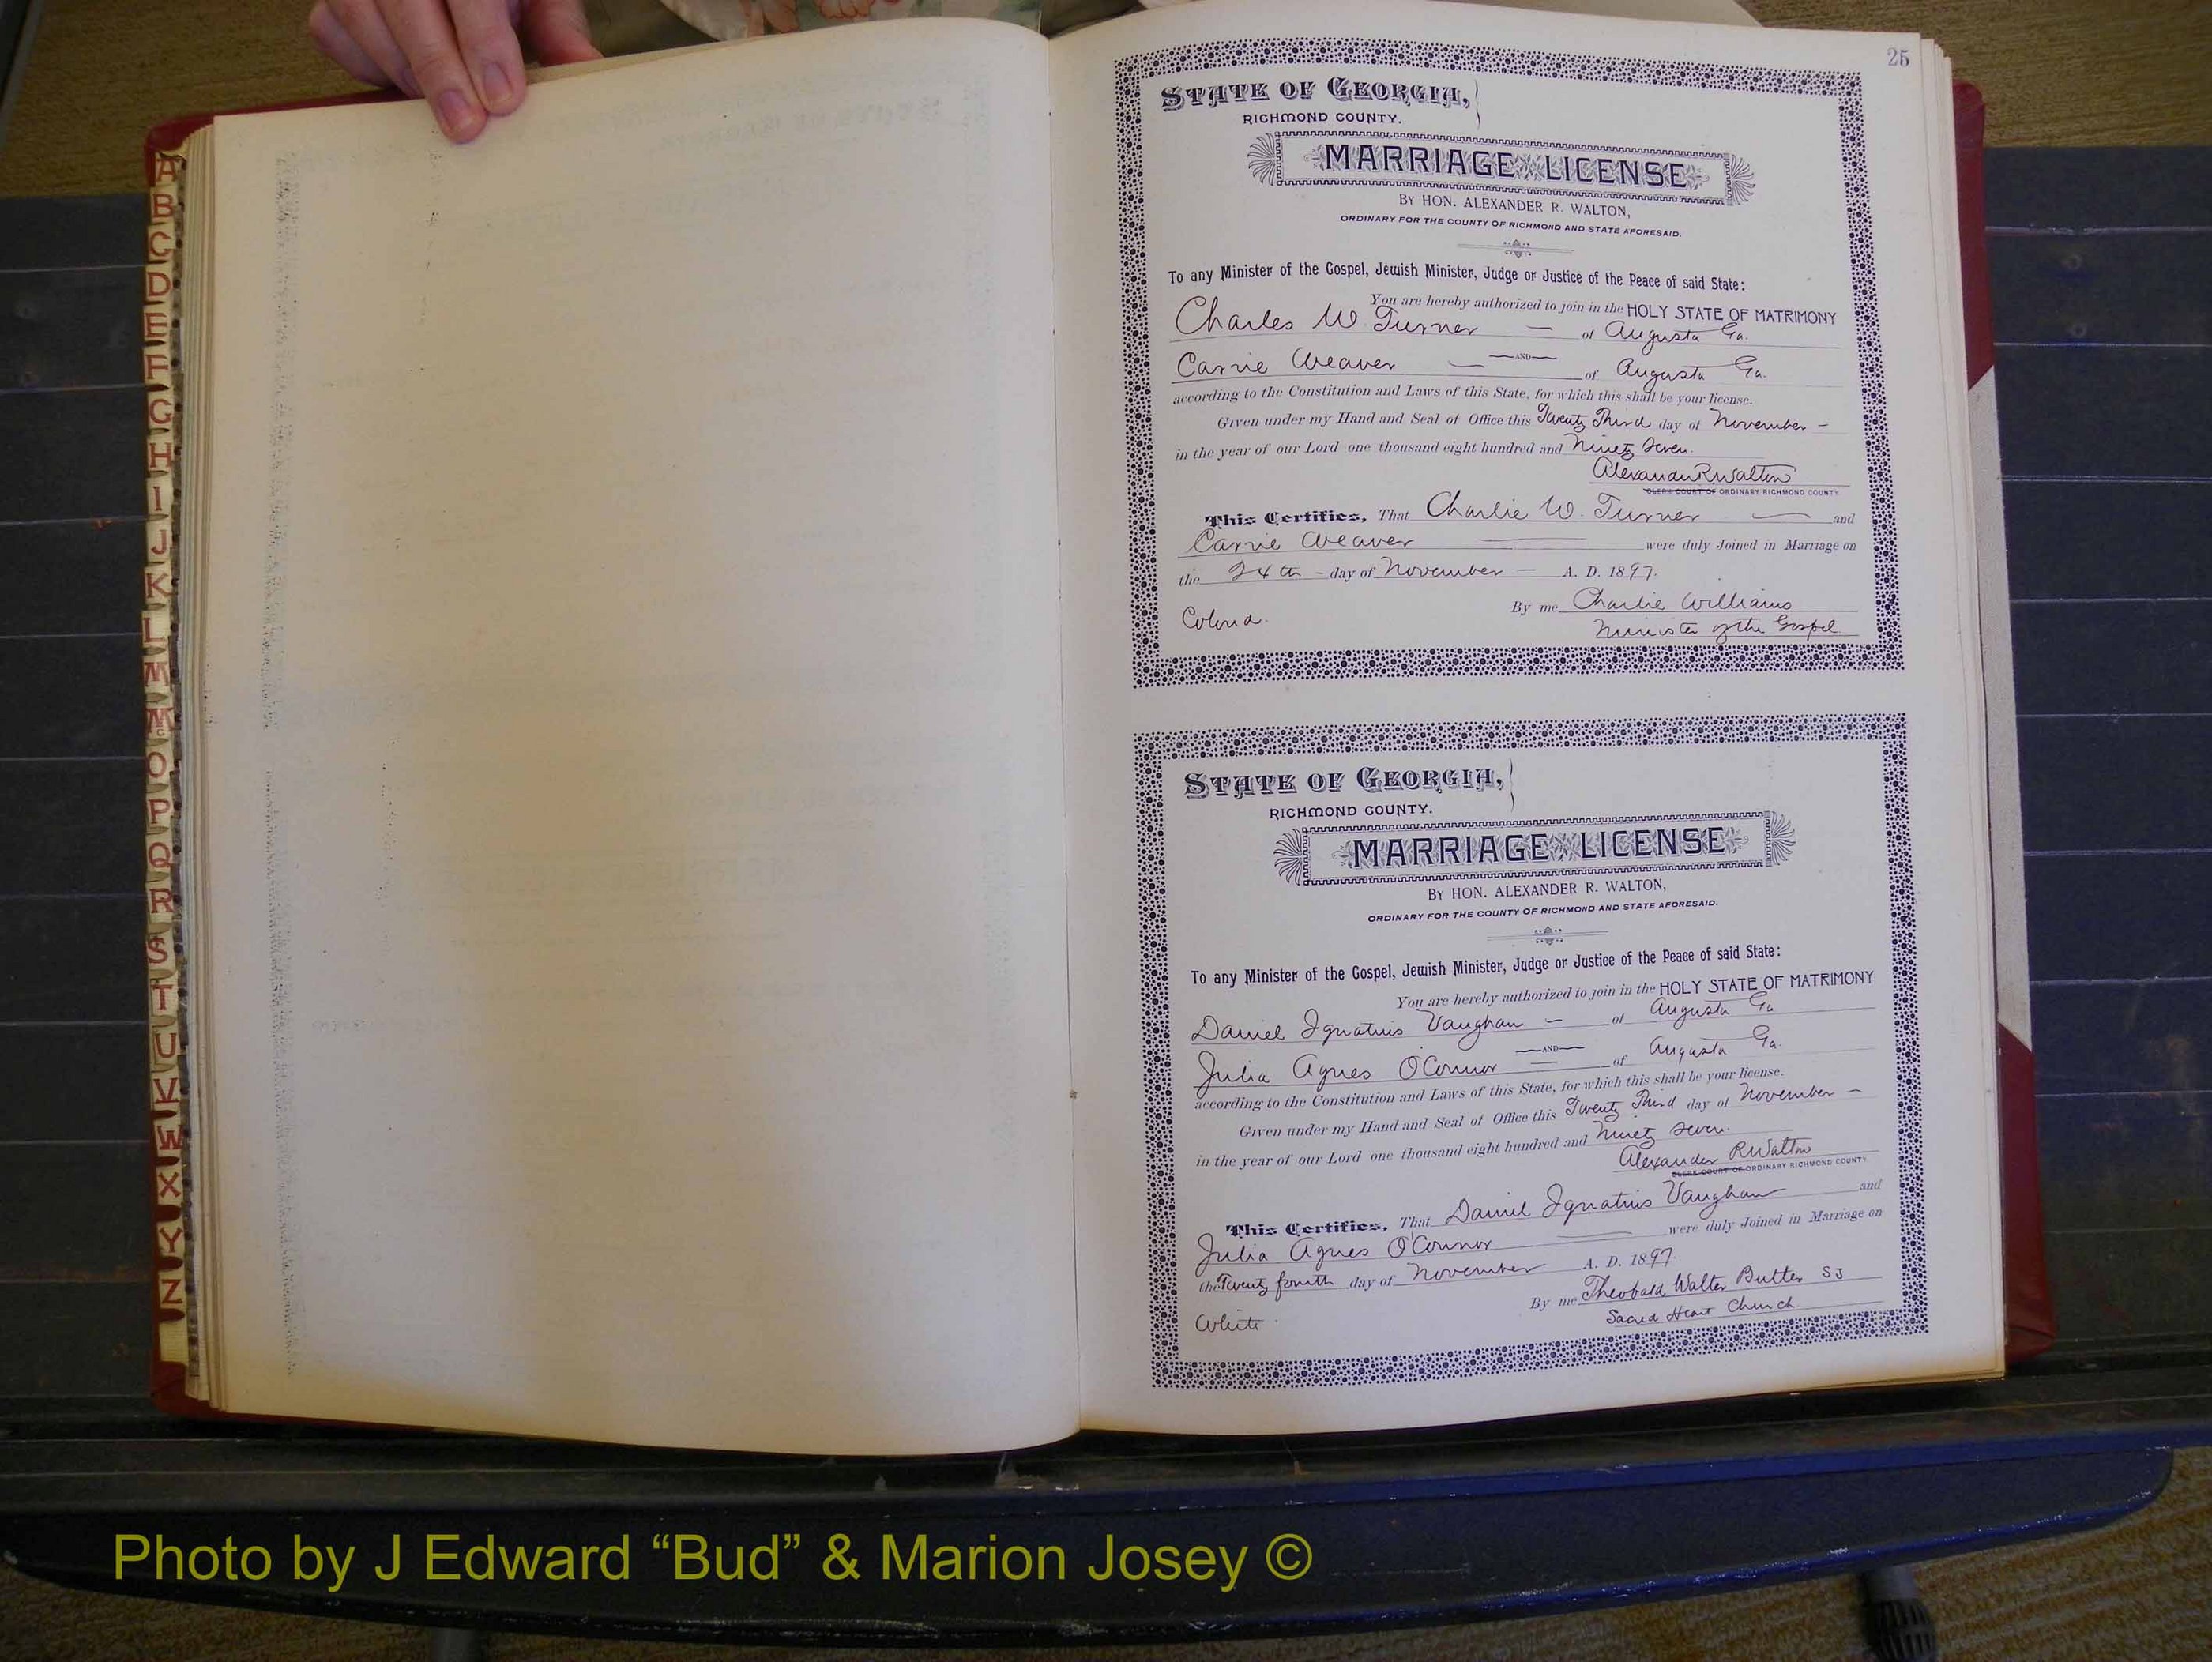 A
B
C
D
E
F
G
H
I
J
K
L
M
Mc
O
P
Q
R
S
T
U
V
W
X
Y
Z
25
STATE OF GEORGIA,
RICHMOND COUNTY.
MARRIAGE LICENSE
BY HON. ALEXANDER R. WALTON,
ORDINARY FOR THE COUNTY OF RICHMOND AND STATE AFORESAID.
To any Minister of the Gospel, Jewish Minister, Judge or Justice of the Peace of said State:
You are hereby authorized to join in the HOLY STATE OF MATRIMONY
Charles W. Turner — of Augusta Ga.
—AND—
Carrie Weaver — of Augusta Ga.
according to the Constitution and Laws of this State, for which this shall be your license.
Given under my Hand and Seal of Office this Twenty Third day of November –
in the year of our Lord one thousand eight hundred and Ninety Seven.
Alexander R Walton
CLERK COURT OF ORDINARY RICHMOND COUNTY
This Certifies, That Charlie W. Turner — and
Carrie Weaver — were duly Joined in Marriage on
the 24th – day of November — A. D. 1897.
By me Charlie Williams
Colord.
Minister of the Gospel
STATE OF GEORGIA,
RICHMOND COUNTY.
MARRIAGE LICENSE
BY HON. ALEXANDER R. WALTON,
ORDINARY FOR THE COUNTY OF RICHMOND AND STATE AFORESAID.
To any Minister of the Gospel, Jewish Minister, Judge or Justice of the Peace of said State:
You are hereby authorized to join in the HOLY STATE OF MATRIMONY
Daniel Ignatius Vaughan — of Augusta Ga
—AND—
Julia Agnes O'Connor — of Augusta Ga.
according to the Constitution and Laws of this State, for which this shall be your license.
Given under my Hand and Seal of Office this Twenty Third day of November –
in the year of our Lord one thousand eight hundred and Ninety Seven.
Alexander R Walton
CLERK COURT OF ORDINARY RICHMOND COUNTY
This Certifies, That Daniel Ignatius Vaughan and
Julia Agnes O'Connor — were duly Joined in Marriage on
the Twenty fourth day of November A. D. 1897.
By me Theobald Walter Butler SJ
White
Sacred Heart Church
Photo by J Edward “Bud” & Marion Josey ©